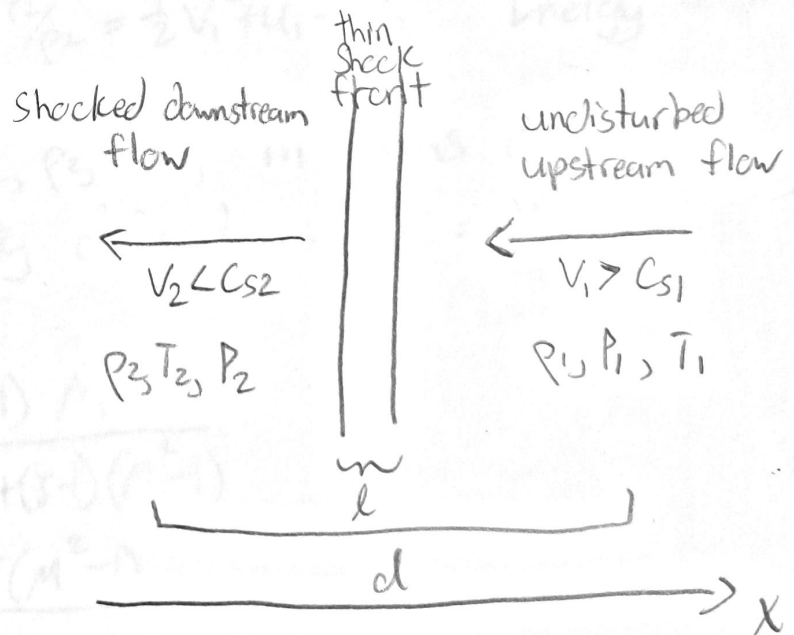 thin
shock
front
shocked downstream
flow
undisturbed
upstream flow
V₂ < Cs₂
V₁ > Cs₁
ρ₂, T₂, P₂
ρ₁, P₁, T₁
l
d
x